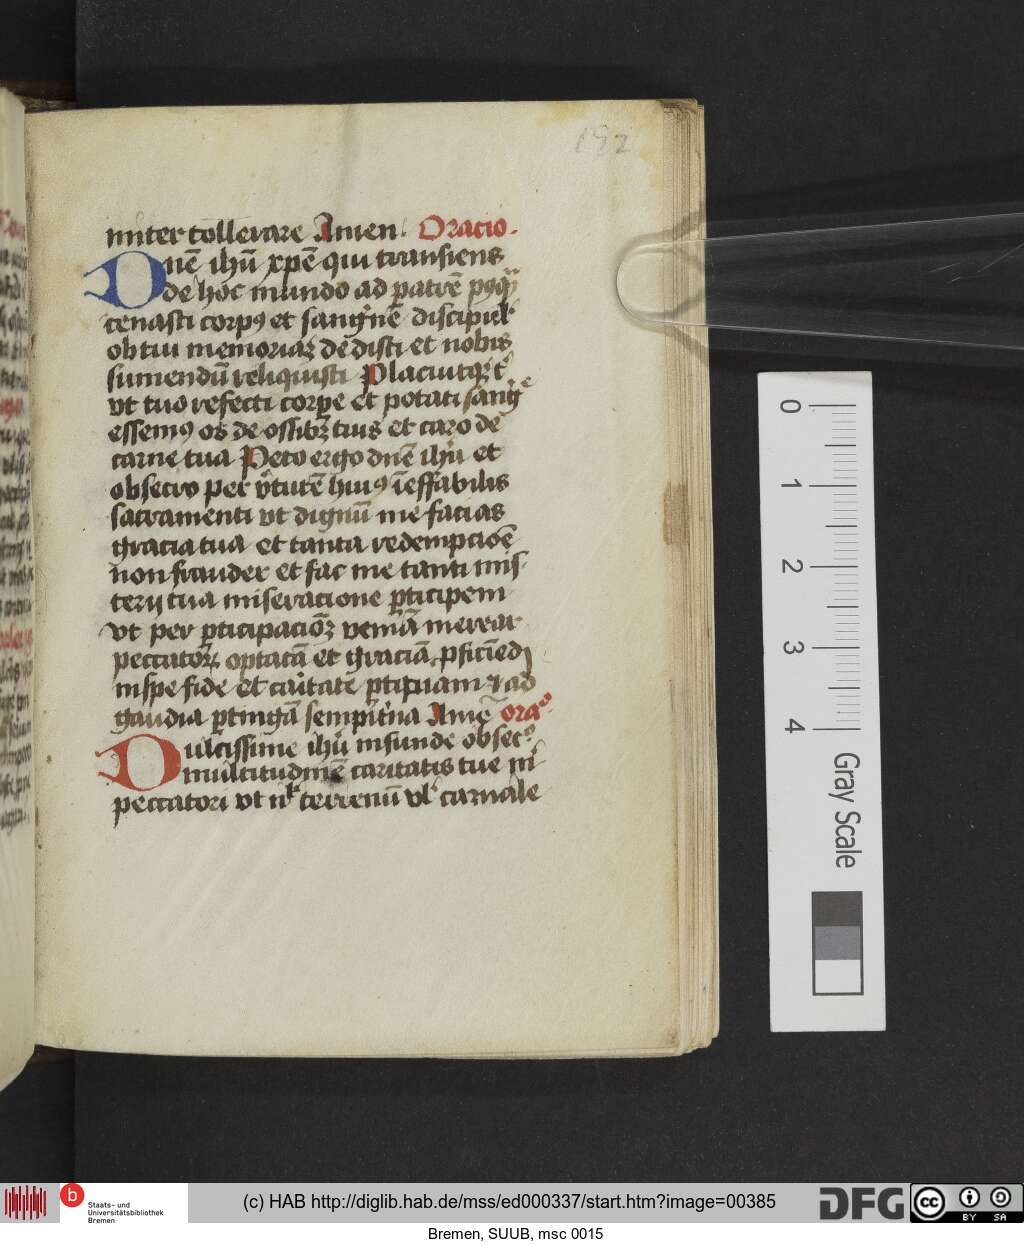 192
niter tollerare Amen Oracio.
Dnē ihū xpē qui transiens
de hoc mundo ad patrē
cenasti corpꝰ et sangⁱnē discipul
ob tui memoriaꝫ dedisti et nobis
sumendū reliquisti Placuitqꝫ tⁱ
vt tuo refecti corpe et potati sangⁱe
essemꝰ os de ossibꝫ tuis et caro de
carne tua Peto ergo dnē ihū et
obsecro per vⁱtutē huiꝰ īeffabilis
sacramenti vt dignū me facias
gracia tua et tanta redempcioē
non frauder et fac me tanti mis-
terij tua miseracione pticipem
vt per pticipacioꝫ veniā merear
peccatoꝝ optatā et graciā pficiēdi
in spe fide et caⁱtate ptipuam ⁊ ad
gaudia ptingā sempitⁱna Amē oraº
Dulcissime ihū infunde obsecº
multitudinē caritatis tue mⁱ
peccatori vt nˡ terrenū vˡ carnale
0
1
2
3
4
Gray Scale
b Staats- und
Universitätsbibliothek
Bremen
(c) HAB http://diglib.hab.de/mss/ed000337/start.htm?image=00385
DFG
cc BY SA
Bremen, SUUB, msc 0015